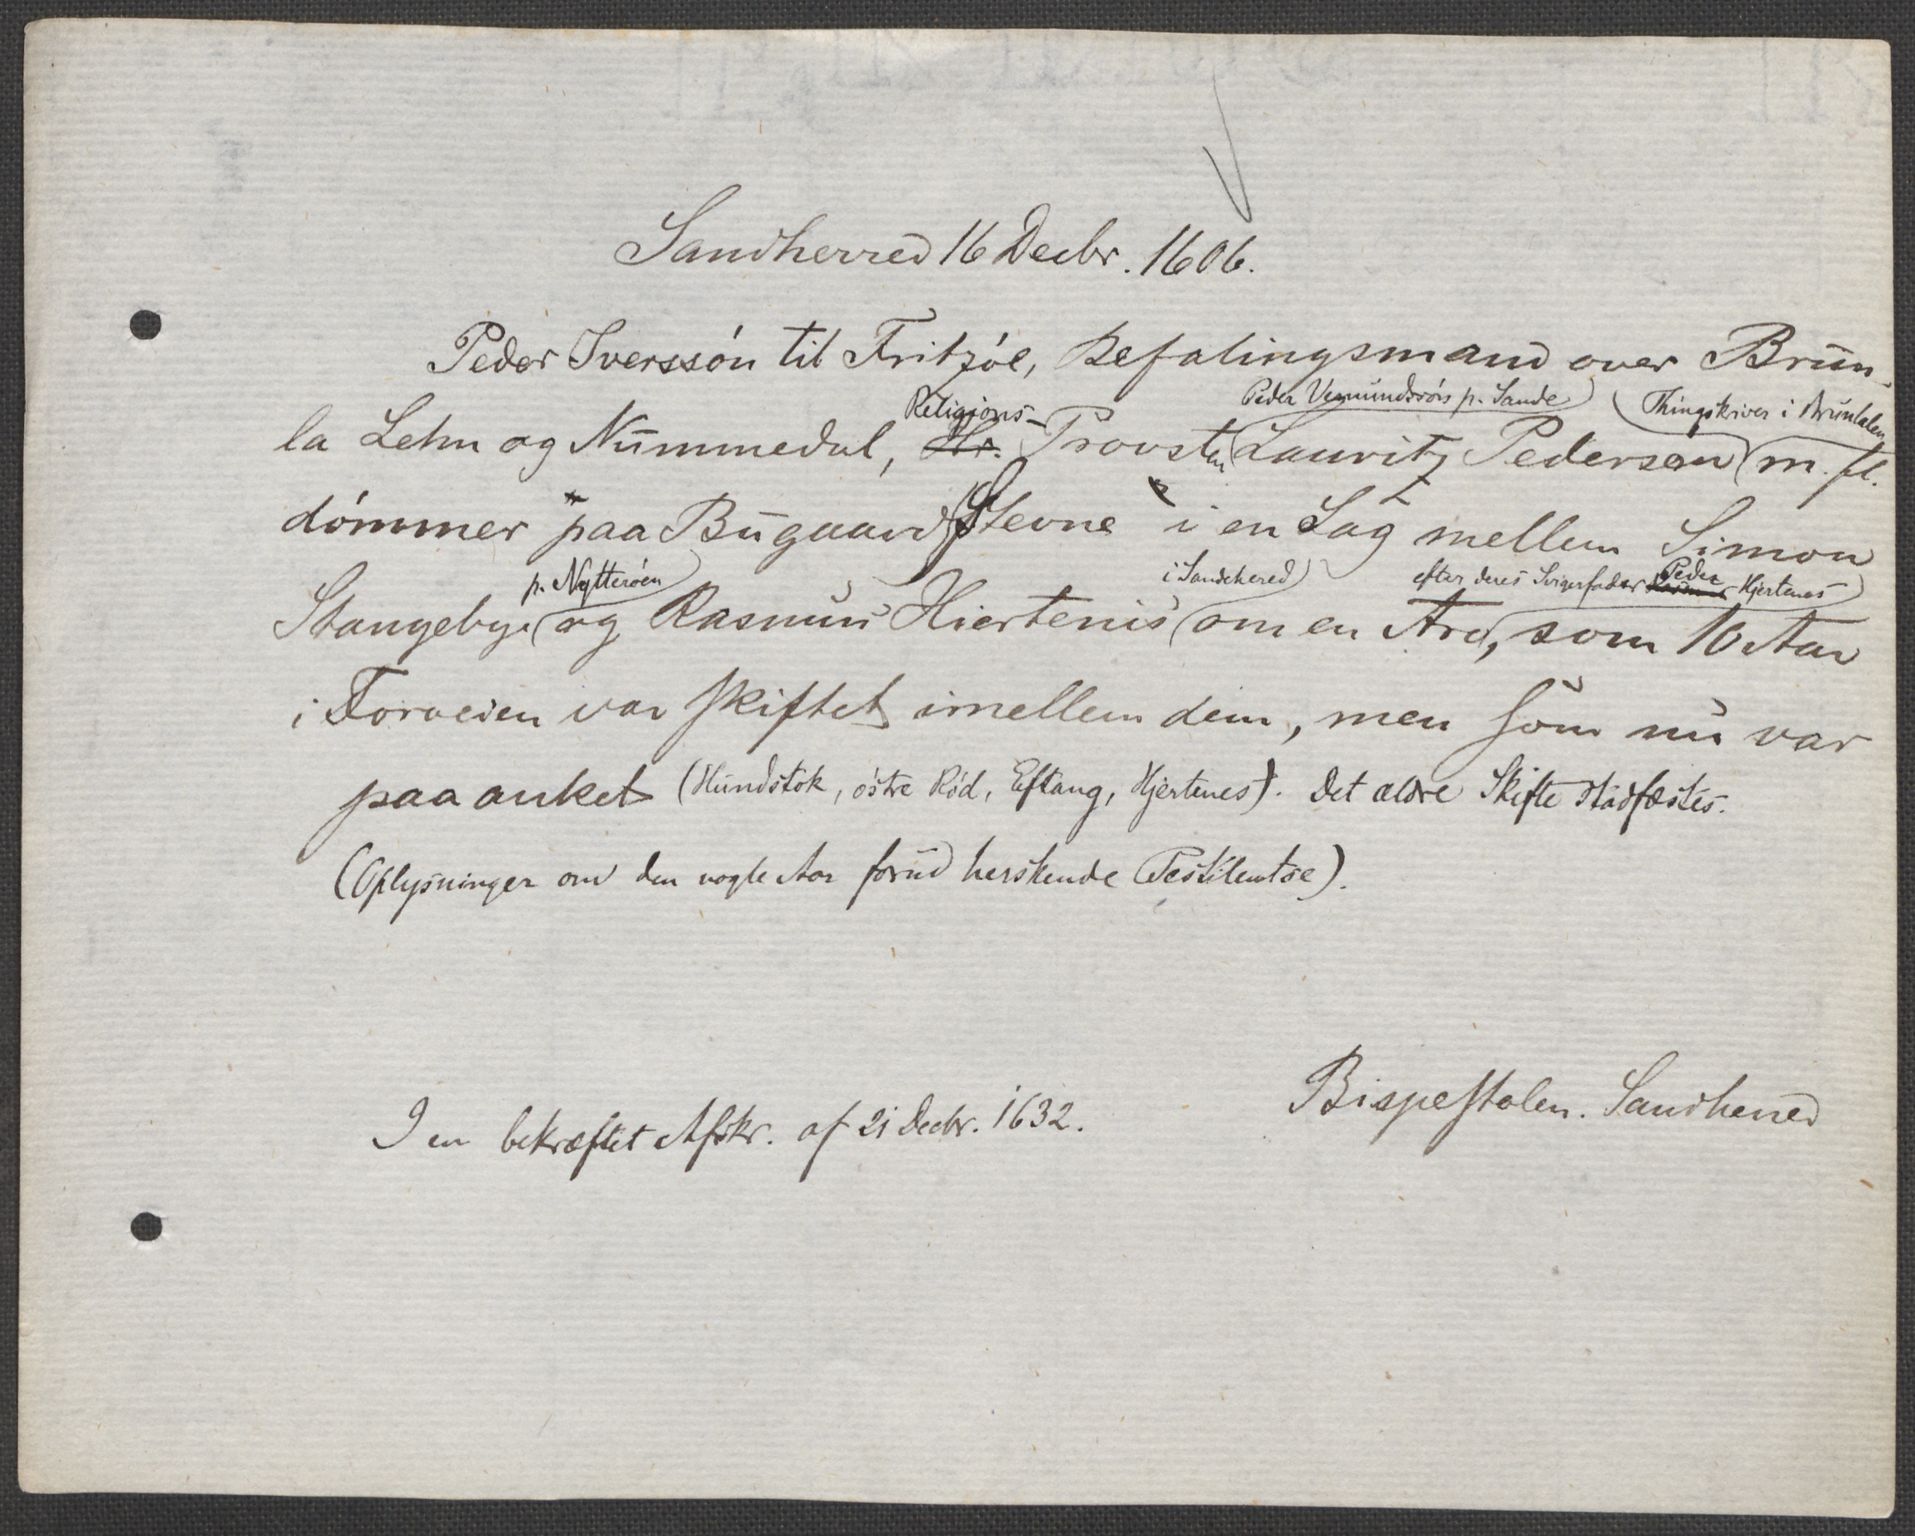 Sandherred 16 Decbr. 1606.
Peder Iverssön til Fritzöe, Befalingsmand over Brun-
Religions- Peder Vemundssön p. Sande Thingskriver i Brunlalen
la Lehn og Nummedal, Hr. Provsten Lauritz Pedersøn m. fl.
dömmer "paa Bugaard Stevne" i en Sag mellem Simon
p. Nøtteröen i Sandeherred efter deres Svigerfader Peder Hjertenes
Stangebye og Rasmus Hiertenis om en Arv, som 10 Aar
i Forveien var skiftet imellem dem, men som nu var
paaanket (Hundstok, östre Röd, Eftang, Hjertenes). Det ældre Skifte stadfæstes.
(Oplysninger om den nogle Aar forud herskende Pestilentse).
Bispestolen. Sandherred
I en bekræftet Afskr. af 21 Decbr. 1632.